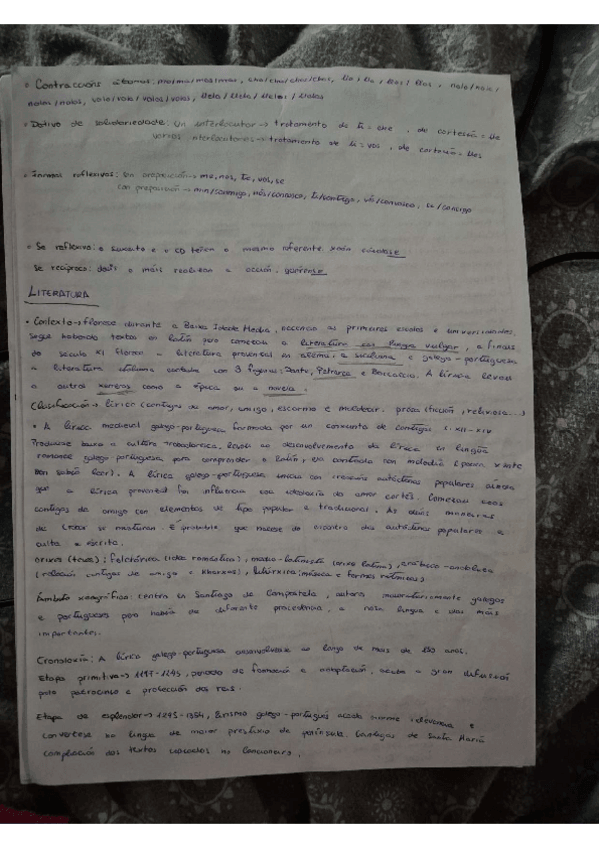 • Contraccións átonas: mo/ma/mos/mas, cho/cha/chos/chas, llo/lla/llos/llas, nolo/nola/
nolos/nolas, volo/vola/volos/volas, llelo/llela/llelos/llelas
• Dativo de solidariedade: Un interlocutor → tratamento de ti = che, de cortesía = lle
varios interlocutores → tratamento de ti = vos, de cortesía = lles
• Formas reflexivas: Sen preposición → me, nos, te, vos, se
con preposición → min/comigo, nós/connosco, ti/contigo, vós/convosco, si/consigo
• Se reflexivo: o suxeito e o CD teñen o mesmo referente.
Se recíproco: dous ou máis realizan a acción.
LITERATURA
• Contexto → florece durante a Baixa Idade Media, as primeiras escolas e universidades.
Segue habendo textos en latín pero comezou a literatura en lingua vulgar, a finais
do século XI florece a literatura provenzal en e galego-portuguesa
a literatura italiana contaba con 3 figuras: Dante, Petrarca e Boccaccio. A lírica levou
a outros xéneros como a épica ou a novela.
Clasificación → lírica (cantigas de amor, amigo, escarnio e maldicir. prosa (ficción, relixiosa...)
• A lírica medieval galego-portuguesa formada por un conxunto de cantigas s. XII-XIV
Produciuse baixo a cultura trobadoresca, levou ao desenvolvemento da lírica en lingua
romance galego-portuguesa para comprender o latín, era cantada con melodía (para xente
non sabía leer). A lírica galego-portuguesa inicia con creacións autóctonas populares aínda
que a lírica provenzal foi influencia coa ideoloxía do amor cortés. Comezan coas
cantigas de amigo con elementos de tipo popular e tradicional. As dúas maneiras
de crear se mesturan. É probable que nacese do encontro das autóctonas populares e
culta e escrita.
Orixes (teses): folclórica (idea romántica), medio-latinista (orixe latina), arábico-andalusa
(relación cantigas de amigo e kharxas), litúrxica (música e formas rítmicas)
Ámbito xeográfico: centro en Santiago de Compostela, autores maioritariamente galegos
e portugueses pero había de diferente procedencia, a nosa lingua e das máis
importantes.
Cronoloxía: A lírica galego-portuguesa desenvolveuse ao longo de máis de 150 anos.
Etapa primitiva → 1197-1245, período de formación e adaptación, acada a gran difusión
polo patrocinio e protección dos reis.
Etapa de esplendor → 1245-1354, lirismo galego-portugués acada enorme relevancia e
convértese na lingua de maior prestixio da península. Cantigas de Santa María
compilación dos textos en Cancioneiro.